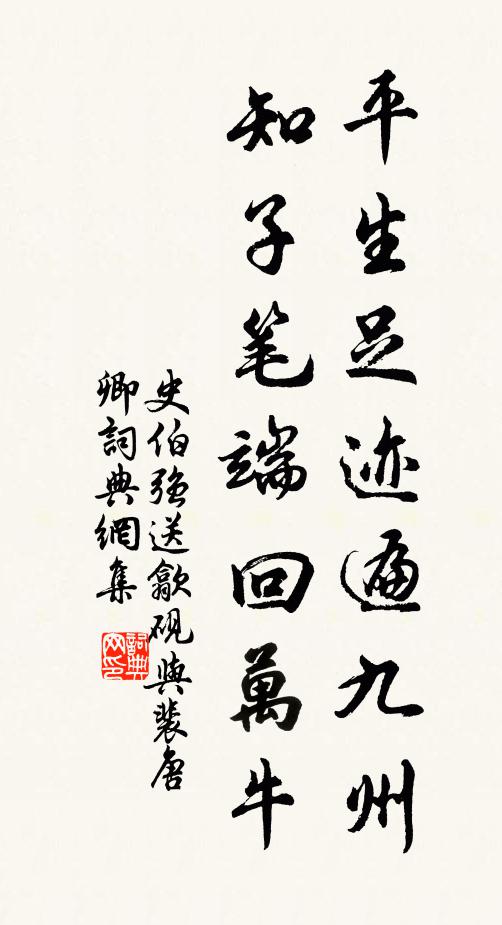 平生足迹遍九州
知子笔端回萬牛
史伯強送歙硯與裴唐
卿詞典網集
詞典网印